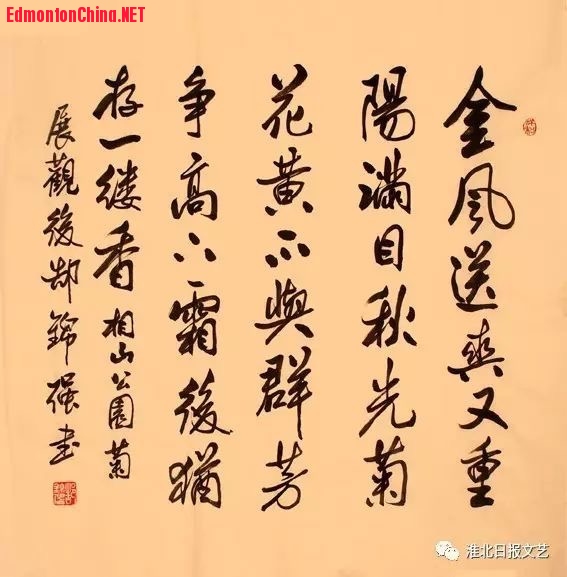 EdmontonChina.NET
金風送爽又重
陽滿目秋光菊
花黄不與群芳
争高下霜後猶
存一缕香 相山公園菊
展觀後郜錦强書
淮北日报文艺